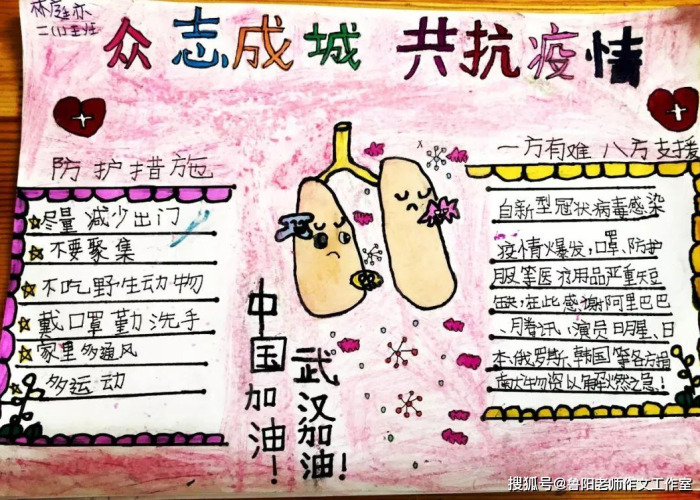 林庭亦
众志成城 共抗疫情
防护措施
尽量减少出门
不要聚集
不吃野生动物
戴口罩勤洗手
家里多通风
多运动
中国加油!
武汉加油!
一方有难 八方支援
自新型冠状病毒感染
疫情爆发,口罩、防护
服等医疗用品严重短
缺,在此感谢阿里巴巴
、腾讯、演员明星、日
本、俄罗斯、韩国等各方捐
献物资以解燃之急!
搜狐号@鲁阳老师作文工作室